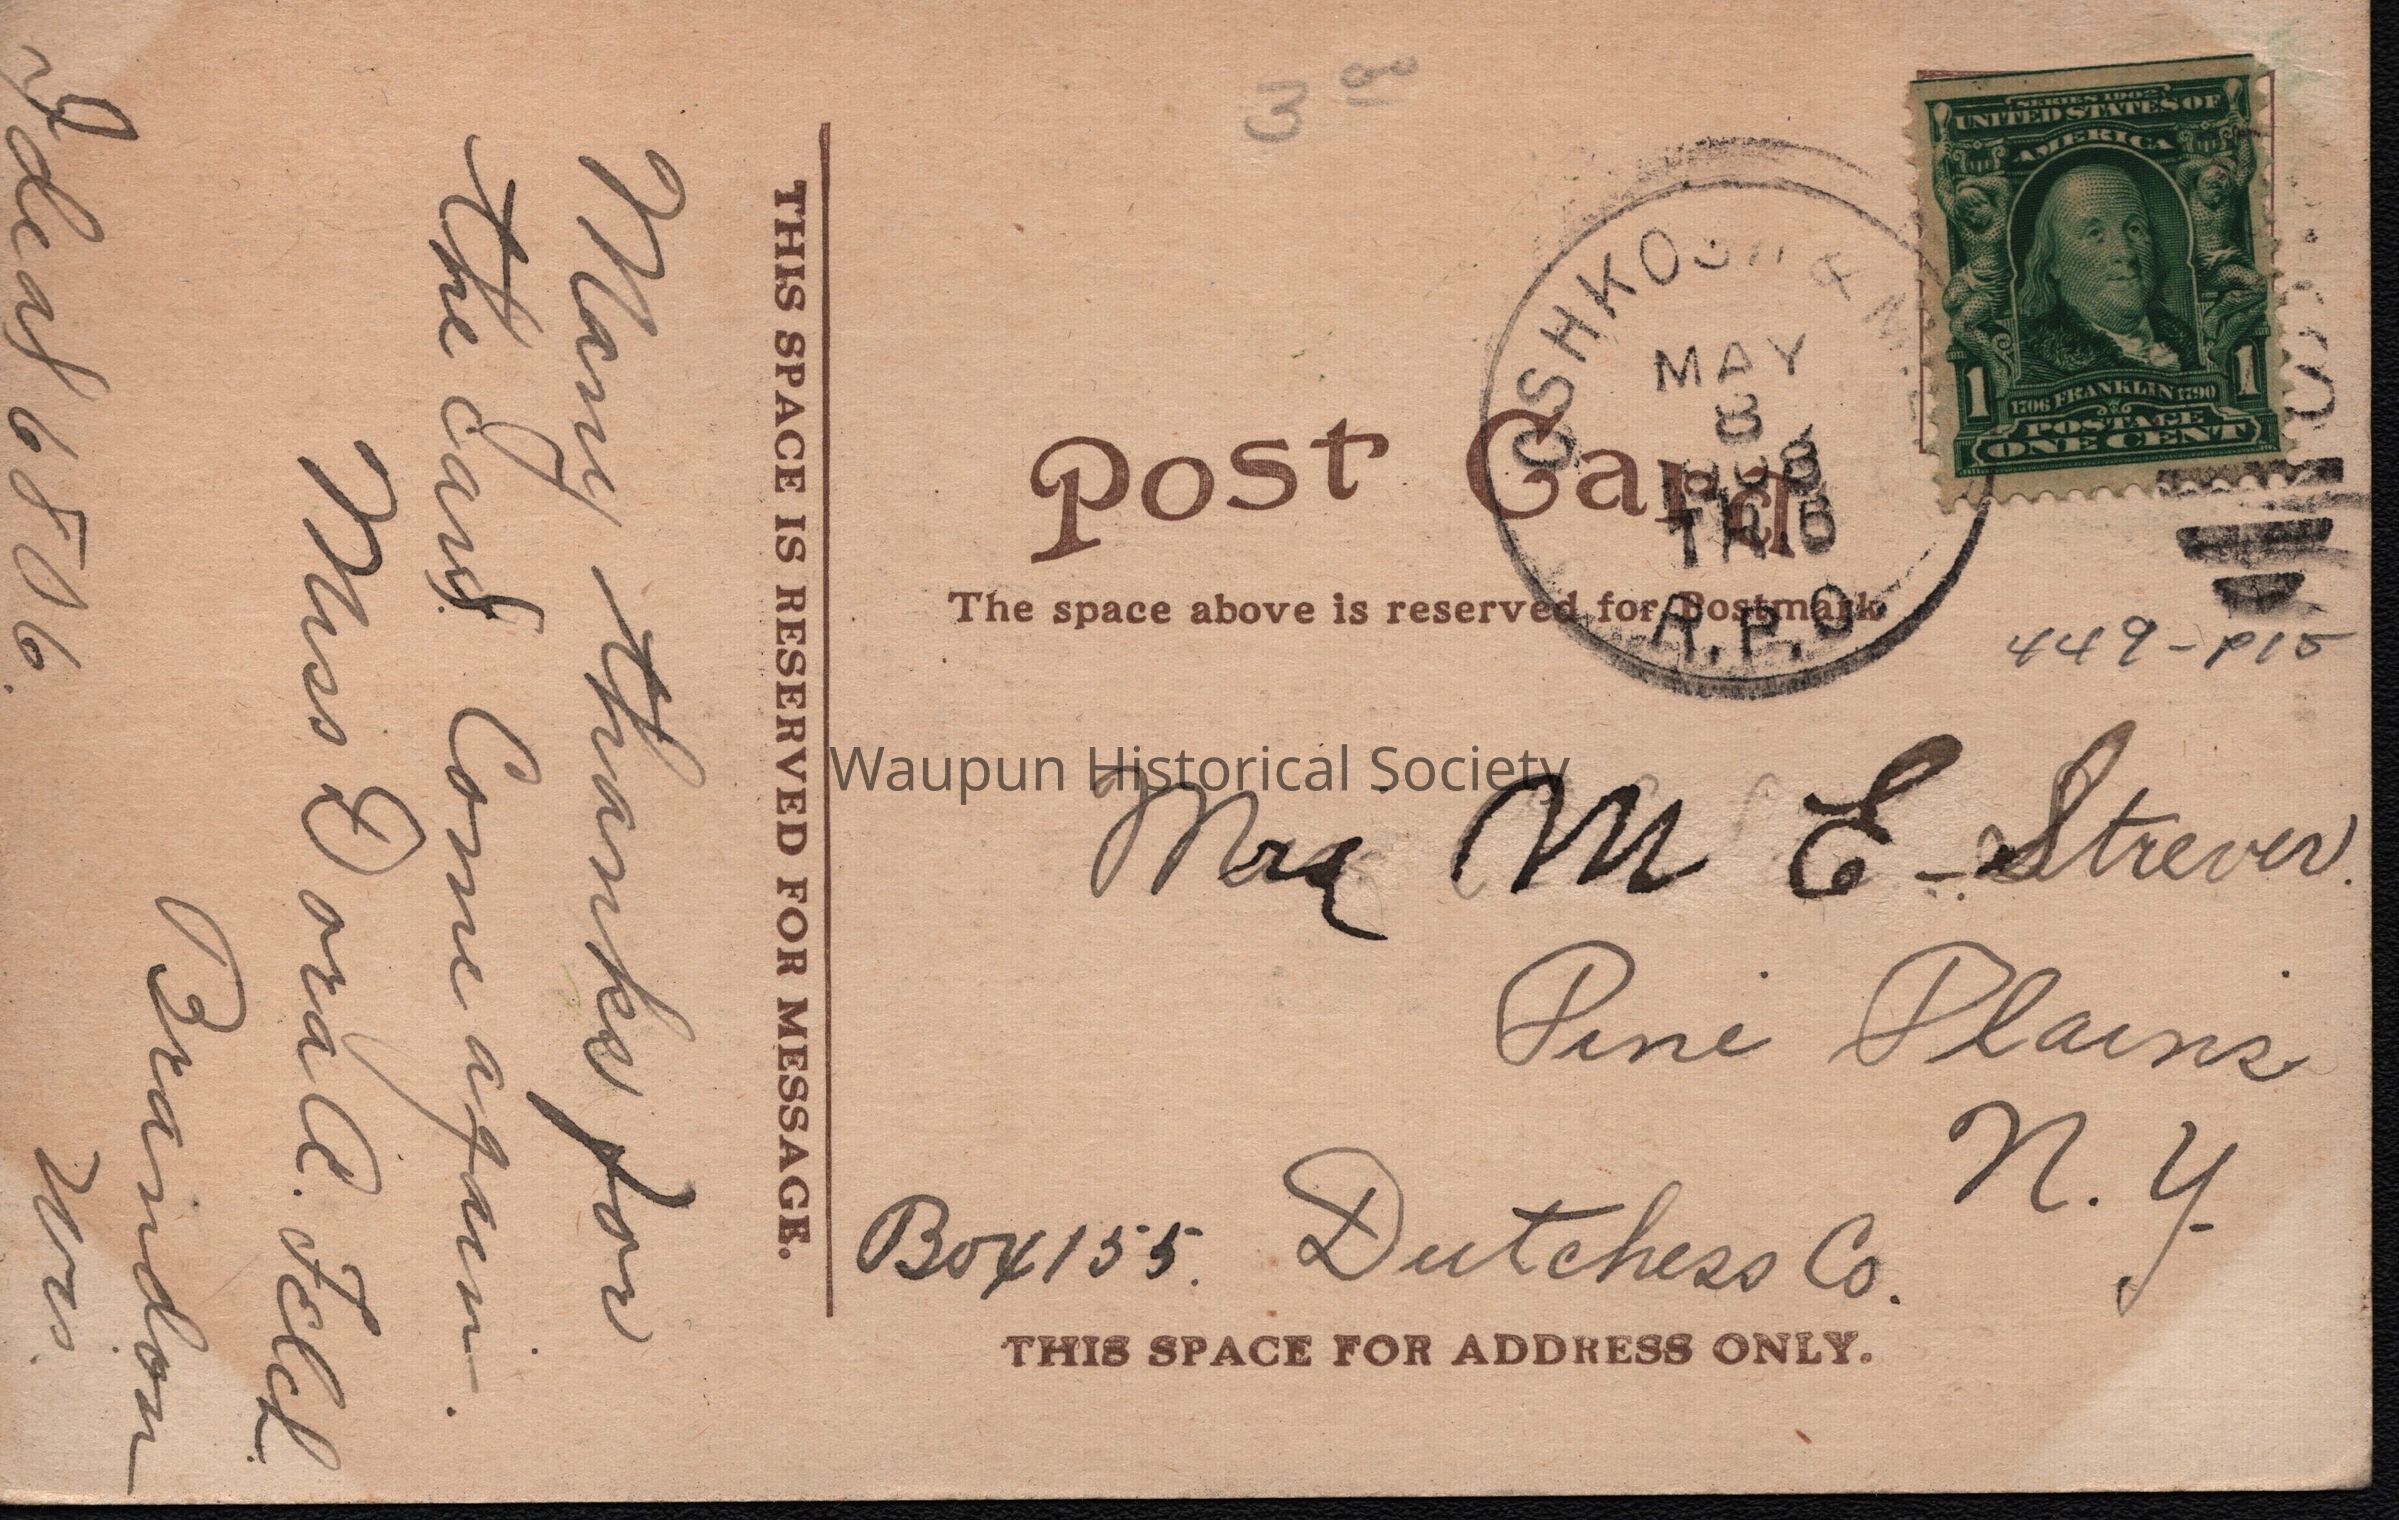 3 00
SERIES 1902
UNITED STATES OF
AMERICA
1706 FRANKLIN 1790
1 1
POSTAGE
ONE CENT
OSHKOSH & M
MAY
3
R.P.O
Post Card
The space above is reserved for Postmark
449-P15
Waupun Historical Society
Mrs M E - Strever.
Pine Plains
N. Y
Box 155. Dutchess Co.
THIS SPACE FOR ADDRESS ONLY.
THIS SPACE IS RESERVED FOR MESSAGE.
Many thanks for
the card. Come again.
Miss Dora C.
Brandon
Wis.
Ideal 6856.